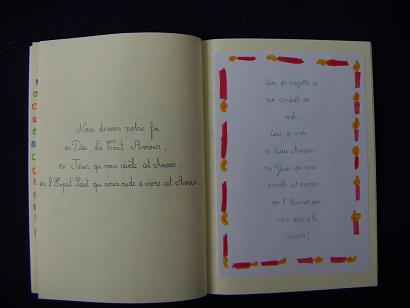 Nous disons notre foi
en Dieu, le Tout Amour,
en Jésus qui nous révèle cet Amour,
en l'Esprit Saint qui nous aide à vivre cet Amour...
Oui, je rejette ce
qui conduit au
mal.
Oui, je crois
en Dieu Amour,
en Jésus qui nous
révèle cet amour
en l'Esprit qui
nous aide à le
vivre!